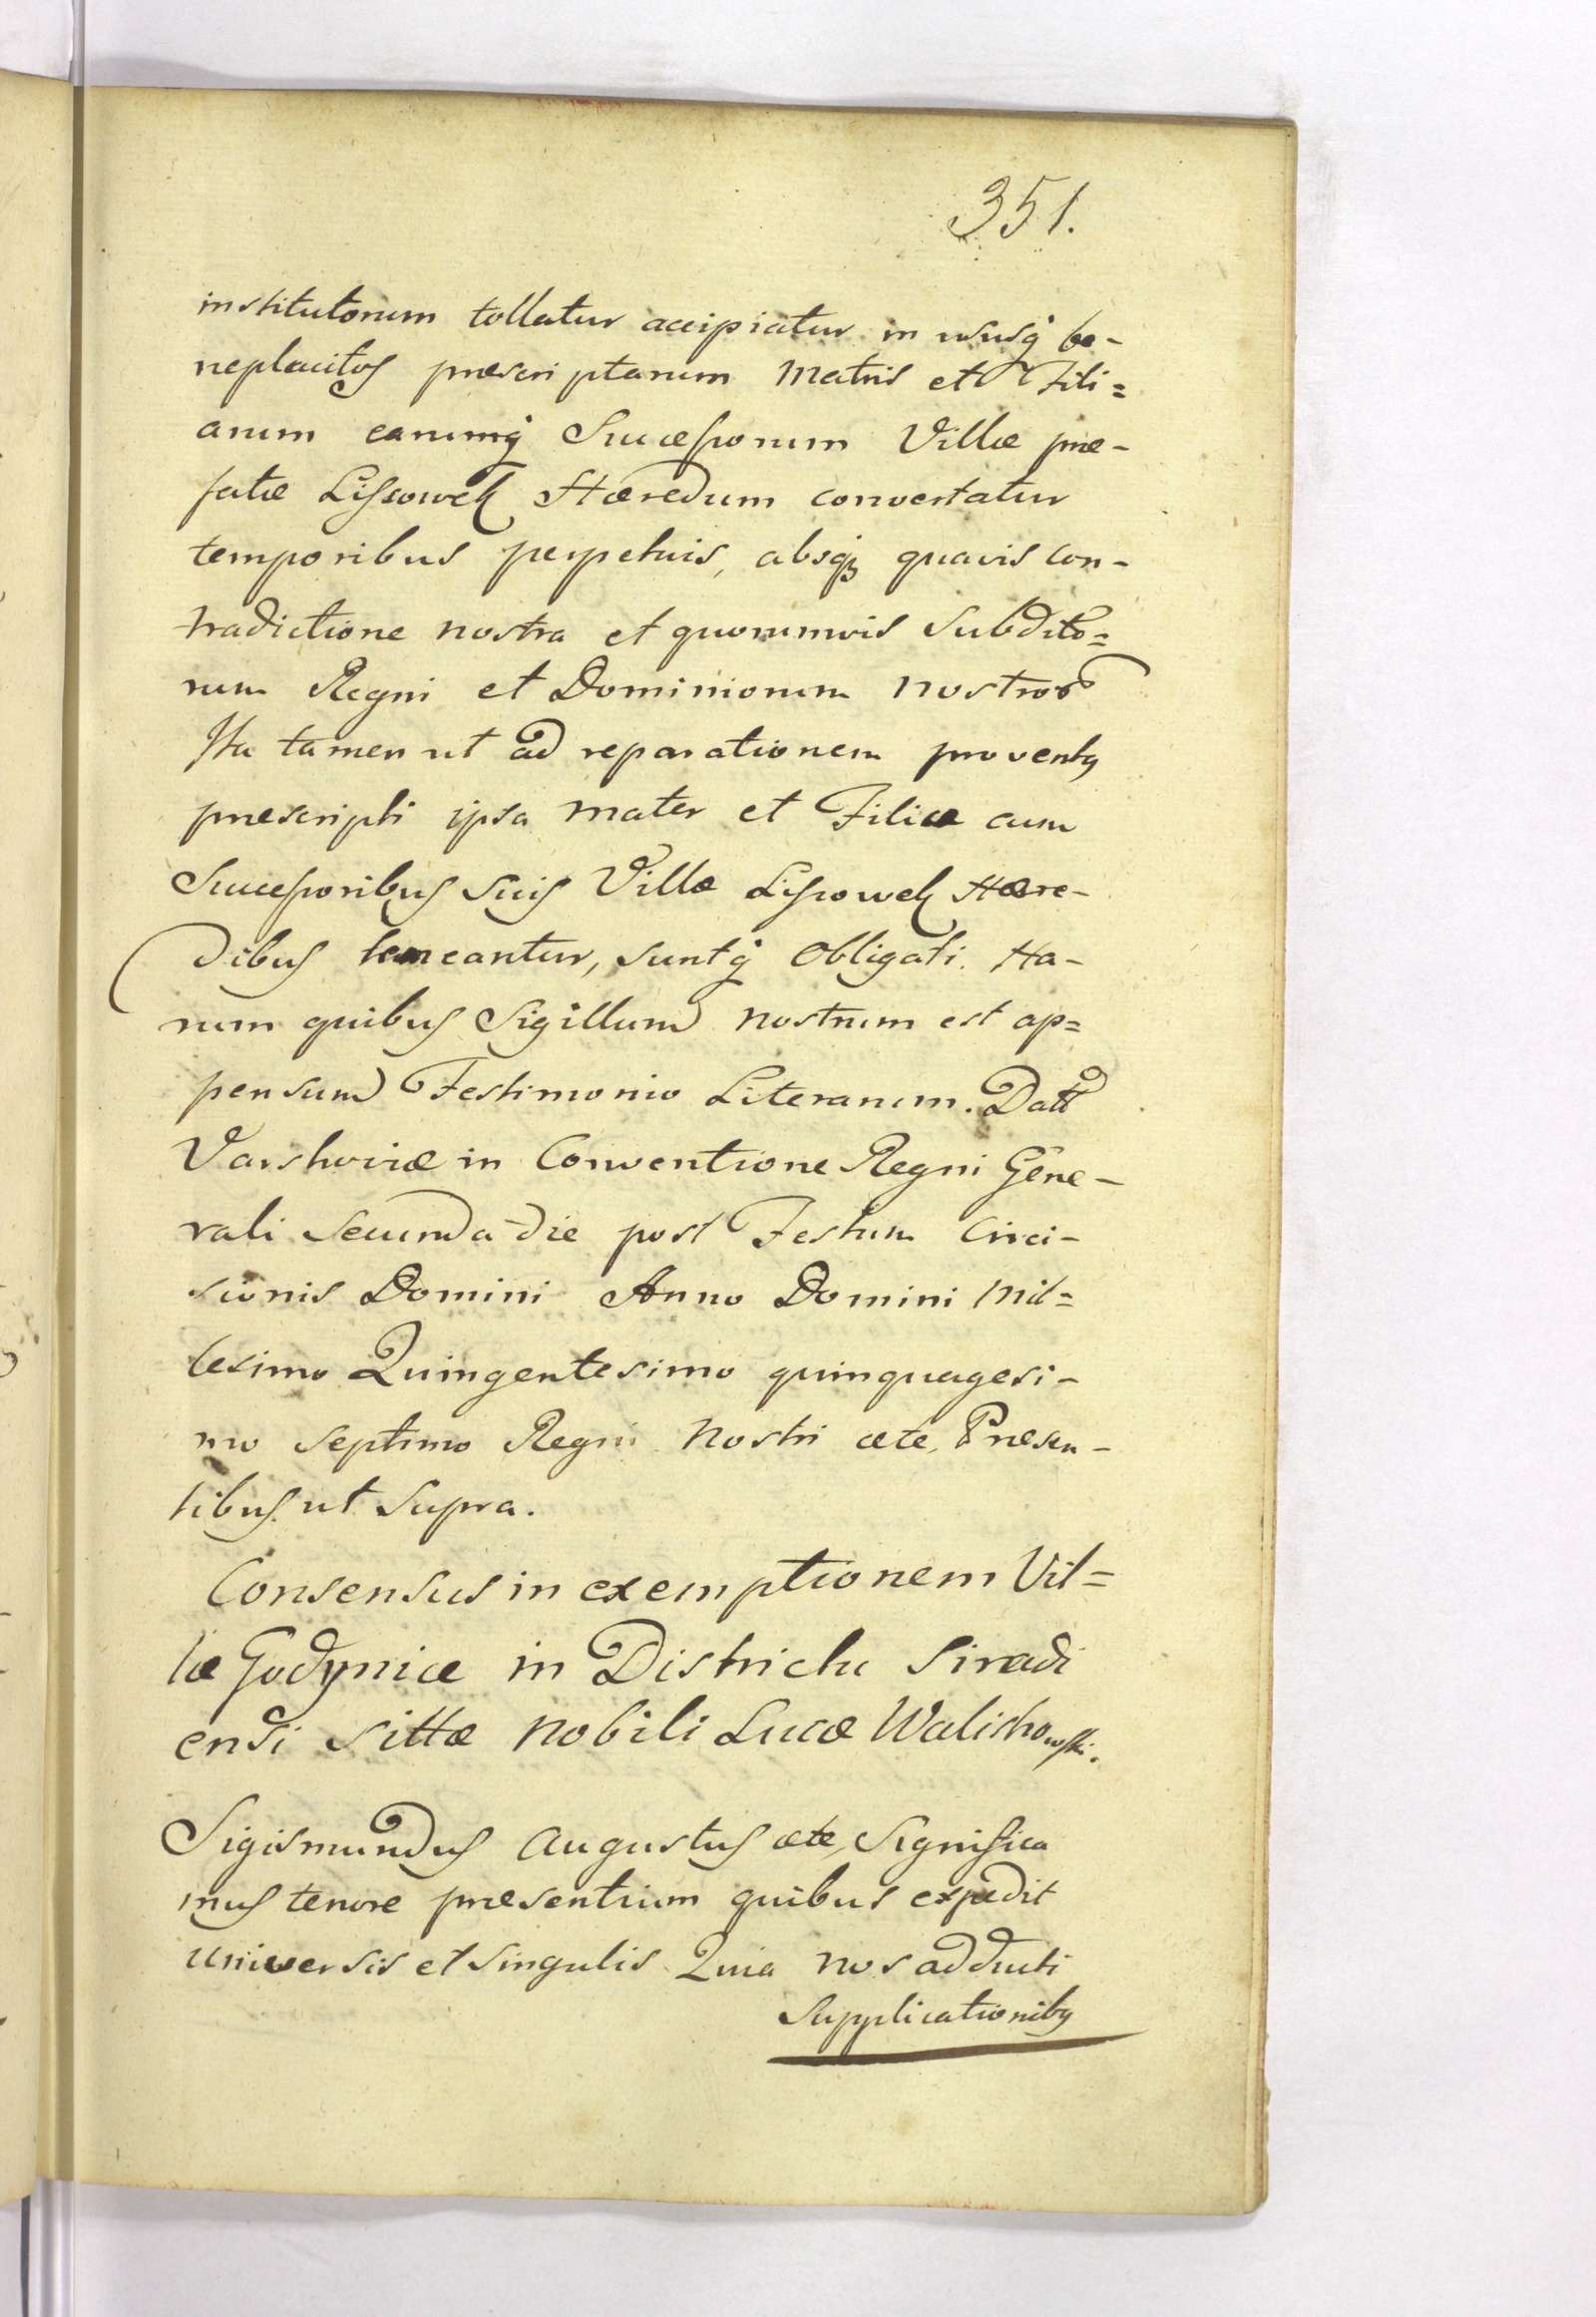 351.
institutorum tollatur accipiatur in ususq be-
neplacitos præscriptarum Matris et Fili=
arum earumq Successorum Villæ præ-
fatæ Lissowek Hæredum convertatur
temporibus perpetuis, absq quavis con-
tradictione nostra et quorumvis Subdito=
rum Regni et Dominiorum nostror
Ita tamen ut ad reparationem proventus
præscripti ipsa Mater et Filiæ cum
Successoribus Suis Villæ Lissowek Hære-
dibus teneantur, suntq obligati. Ha-
rum quibus Sigillum nostrum est ap=
pensum Testimonio Literarum. Datt
Varshoviæ in Conventione Regni Gene-
rali Secunda die post Festum Circi-
sionis Domini Anno Domini Mil=
lesimo Quingentesimo quinquagesi-
mo Septimo Regni Nostri æte, Præsen-
tibus ut Supra.
Consensus in exemptionem Vil=
læ Godynice in Districtu Siradi
ensi sittæ Nobili Lucæ Walichowski.
Sigismundus Augustus æte, Significa
mus tenore præsentium quibus expedit
universis et singulis Quia nos adducti
Supplicationibus